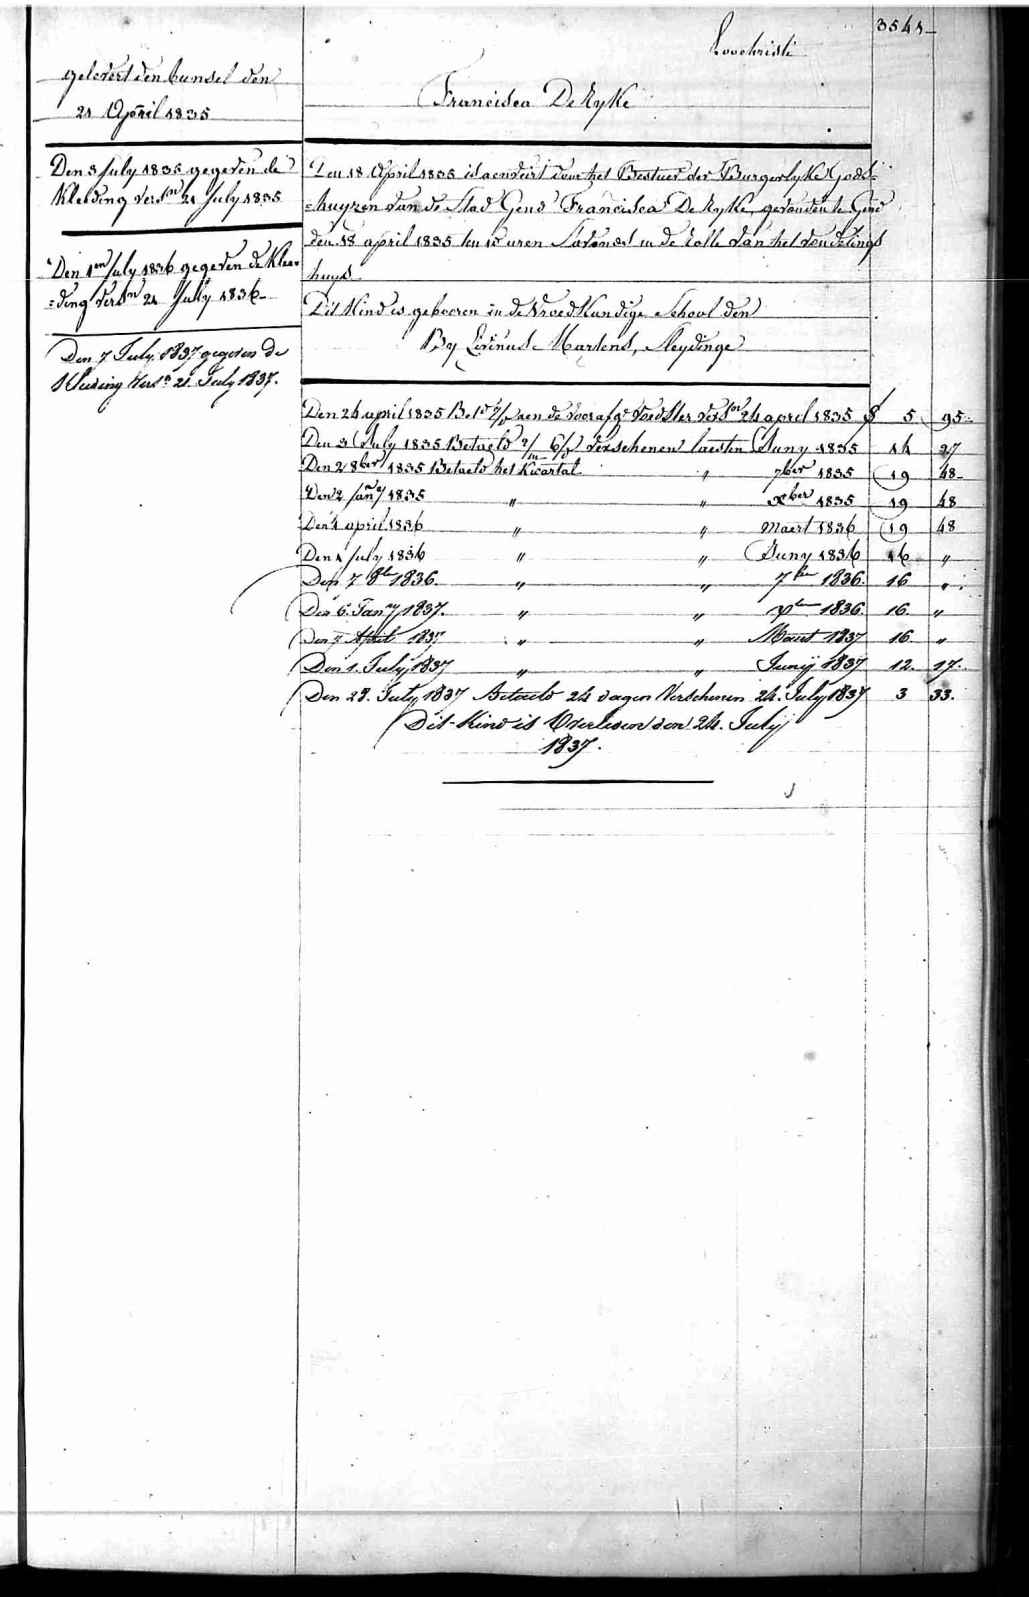 3541
Loochristi
gelevert den bunsel den
21 April 1835
Francisca De Ryke
Den 3 July 1835 gegeven de
Kleeding vers.n 21 July 1835
Den 1en July 1836 gegeven de Klee=
=ding vers.n 21 July 1836
Den 7 July 1837 gegeven de
Kleeding Vers.n 21 July 1837.
Den 18 April 1835 is aenveirt door het Bestuer der Burgerlyke Gods=
=huyzen van de Stad Gend Francisca De Ryke, gevonden te Gend
den 18 april 1835 ten 10 uren s'avonds in de rolle van het vondelings
huys
Dit Kind is gebooren in de Vroedkundige School den
By Livinus Martens, Sleydinge
Den 24 april 1835 Bet.d aen de voorafg.e voedster vers.n 24 april 1835 5 95
Den 3 July 1835 Betaeld verschenen laesten Juny 1835 14 27
Den 2 8ber 1835 Betaeld het Kwartal " 7ber 1835 19 48
Den 2 Jany 1835 " " Xber 1835 19 48
Den 4 april 1836 " " Maert 1836 19 48
Den 1 July 1836 " " Juny 1836 16 "
Den 7 8br 1836. " " 7br 1836. 16 "
Den 6. Jany 1837. " " Xbr 1836. 16. "
Den 7 April 1837 " " Maert 1837 16. "
Den 1. July 1837 " " Junij 1837 12. 17.
Den 28. July 1837 Betaeld 24 dagen Verschenen 24. July 1837 3 33.
Dit Kind is Overleden den 24. July
1837.